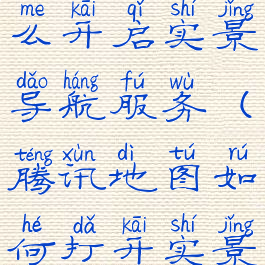 me kāi qǐ shí jǐng
么开启实景
dǎo háng fú wù
导航服务（
téng xùn dì tú rú
腾讯地图如
hé dǎ kāi shí jǐng
何打开实景